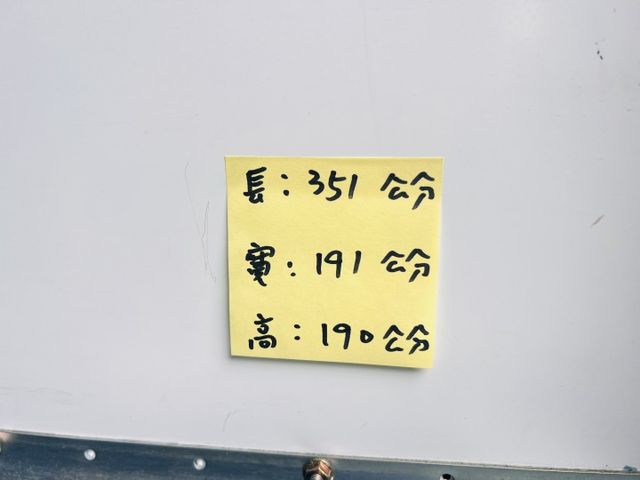 長：351 公分
寬：191 公分
高：190公分